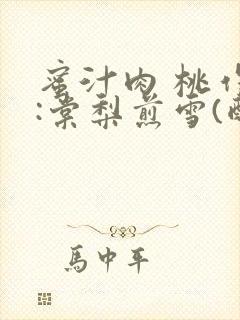 蜜汁肉桃作
:棠梨煎雪(
馬中年